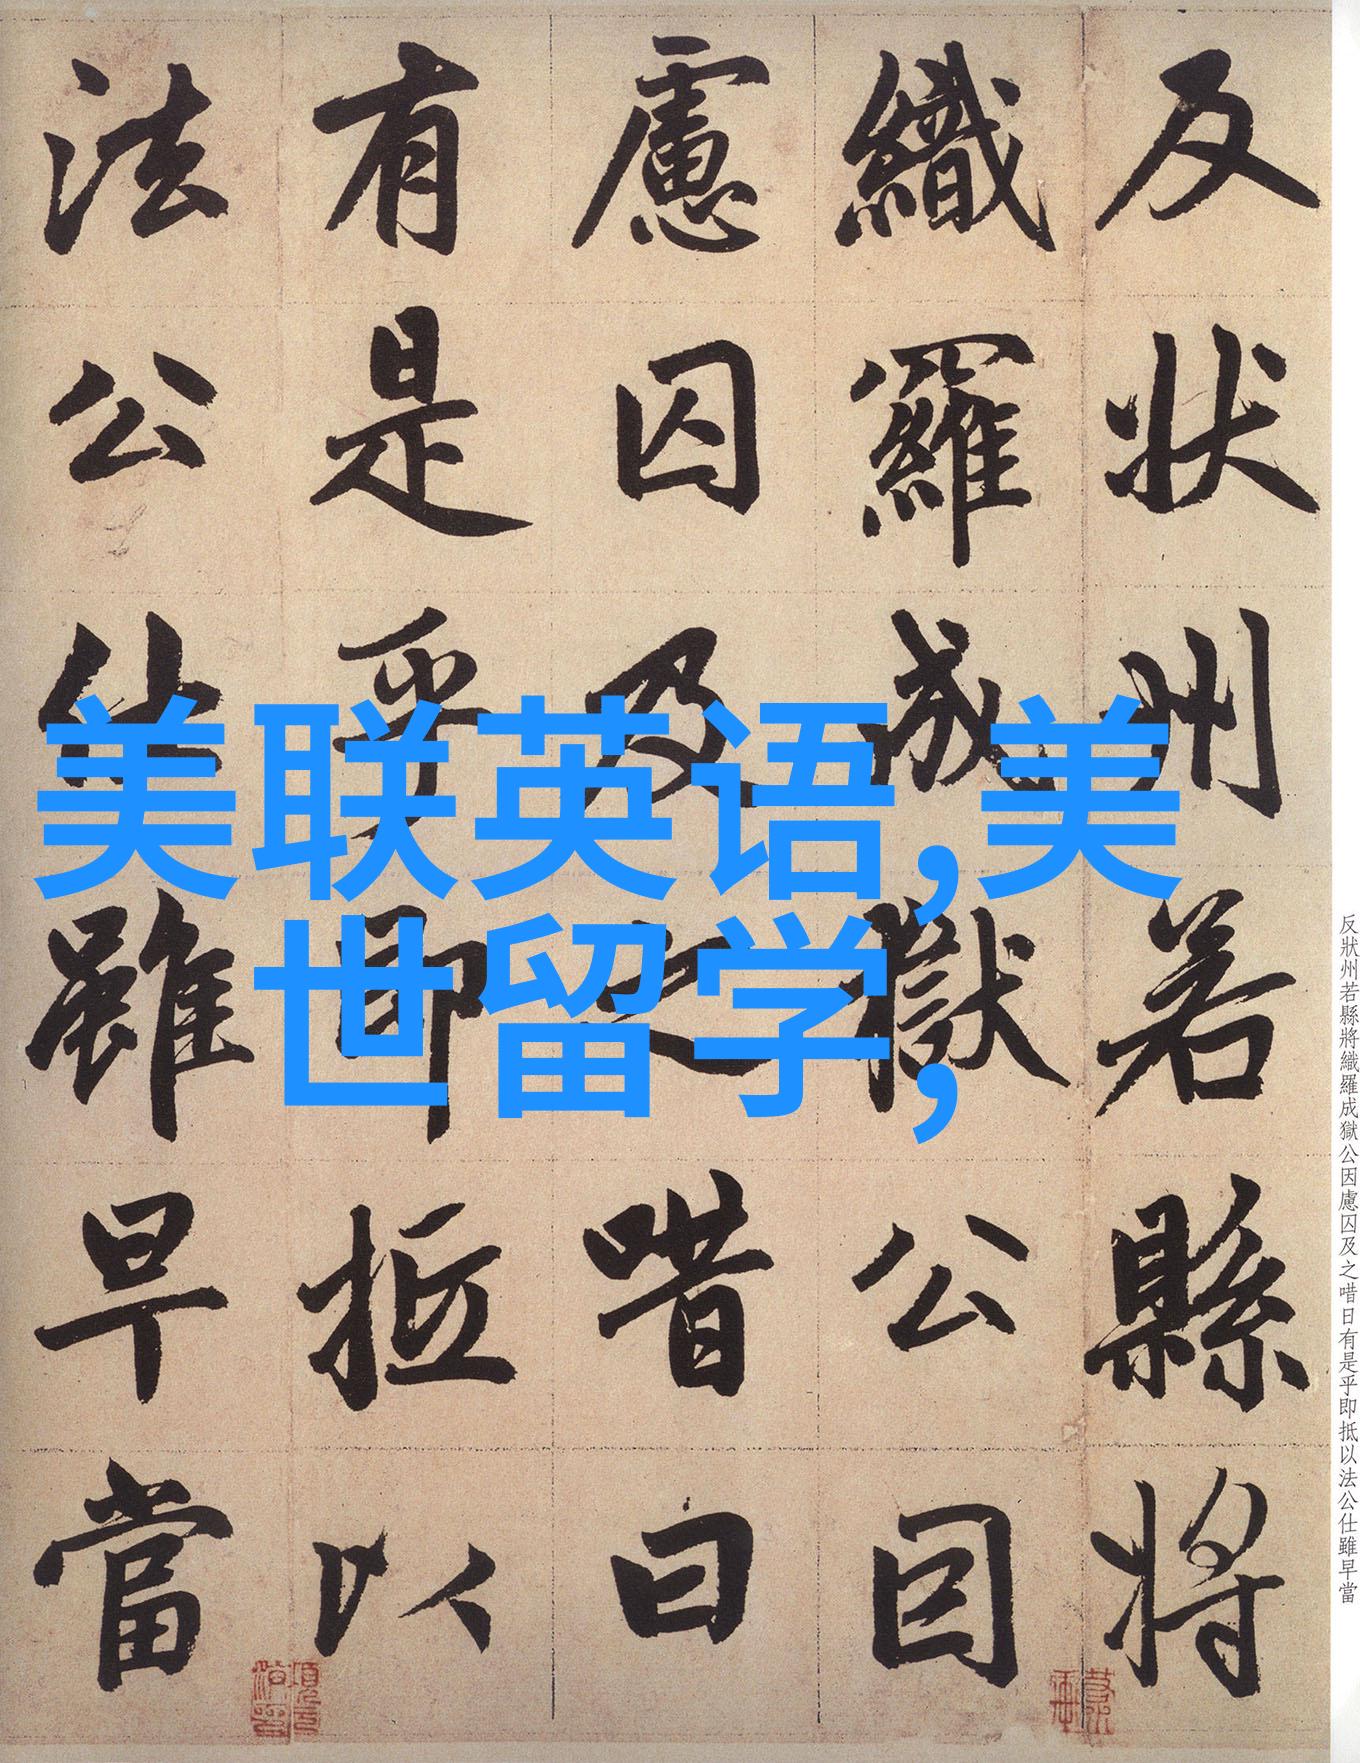 反状州若縣将
織羅成獄公因
慮囚及之唶曰
有是乎即抵以
法公仕雖早當
美联英语,美
世留学,
反狀州若縣將織羅成獄公因慮囚及之唶日有是乎即抵以法公仕雖早當